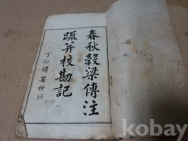 春秋穀梁傳注
疏并校勘記
kobay